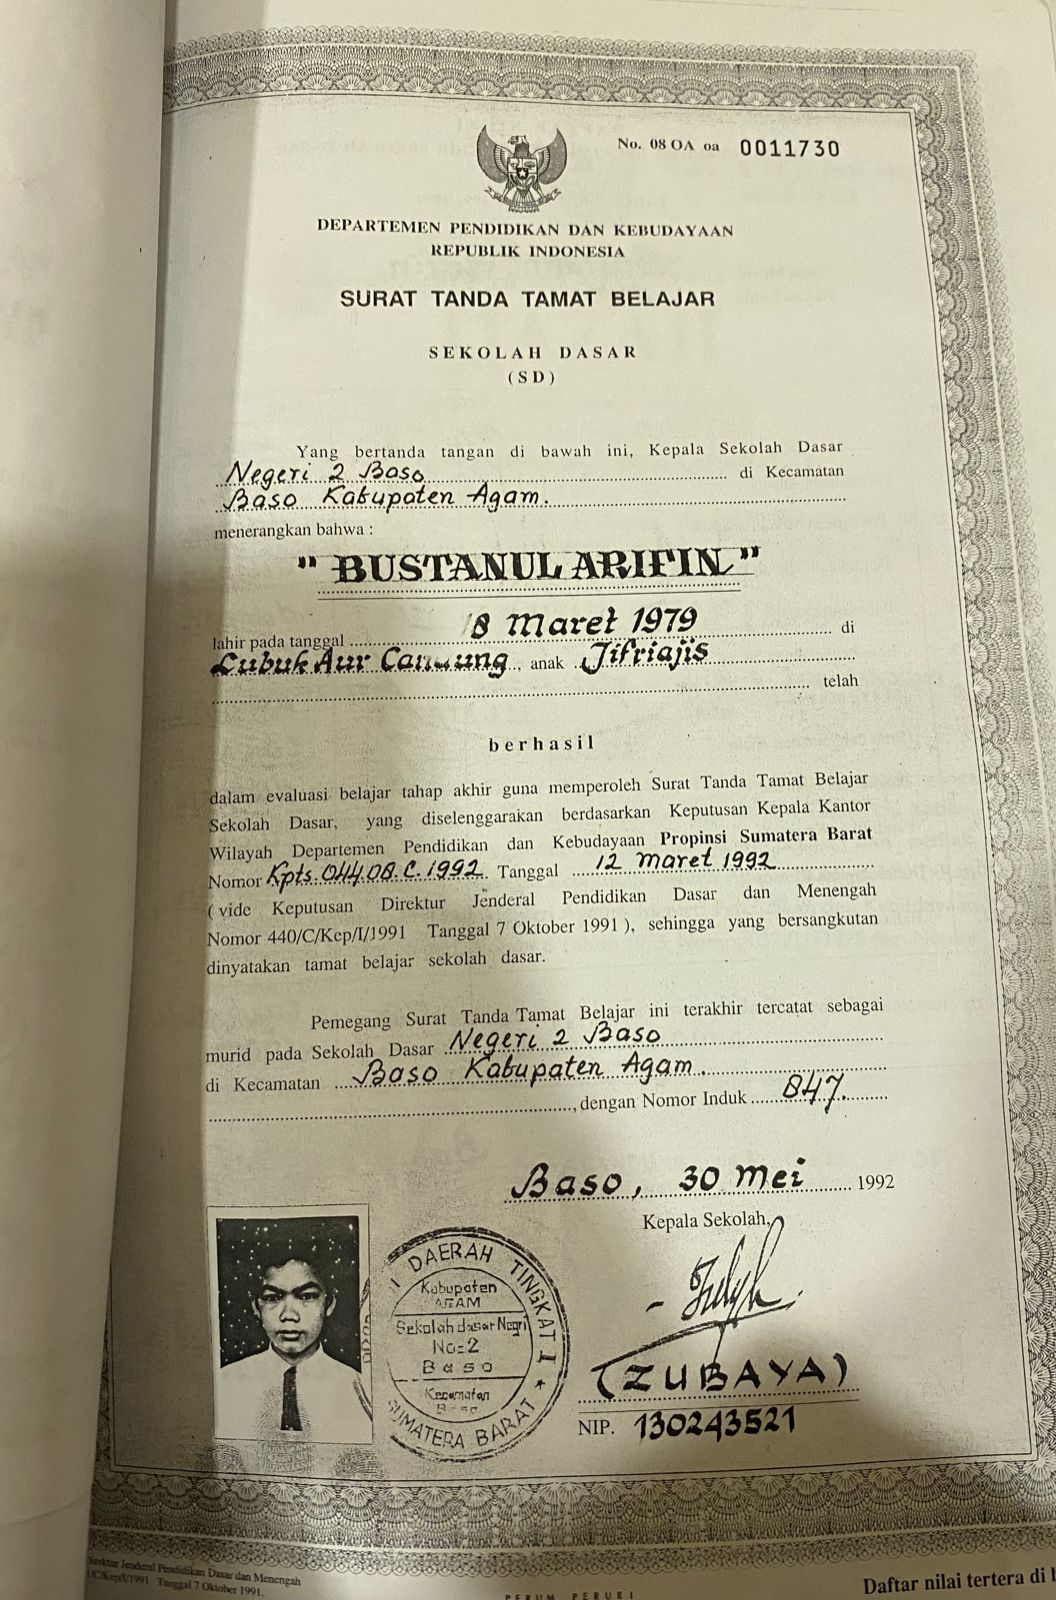 No. 08 OA oa 0011730
DEPARTEMEN PENDIDIKAN DAN KEBUDAYAAN
REPUBLIK INDONESIA
SURAT TANDA TAMAT BELAJAR
SEKOLAH DASAR
(SD)
Yang bertanda tangan di bawah ini, Kepala Sekolah Dasar
Negeri 2 Baso di Kecamatan
Baso Kabupaten Agam.
menerangkan bahwa :
" BUSTANUL ARIFIN "
lahir pada tanggal 8 Maret 1979 di
Lubuk Aur Candung, anak Jifriajis
telah
berhasil
dalam evaluasi belajar tahap akhir guna memperoleh Surat Tanda Tamat Belajar
Sekolah Dasar, yang diselenggarakan berdasarkan Keputusan Kepala Kantor
Wilayah Departemen Pendidikan dan Kebudayaan Propinsi Sumatera Barat
Nomor Kpts.044.08.C.1992. Tanggal 12 maret 1992
( vide Keputusan Direktur Jenderal Pendidikan Dasar dan Menengah
Nomor 440/C/Kep/I/1991 Tanggal 7 Oktober 1991 ), sehingga yang bersangkutan
dinyatakan tamat belajar sekolah dasar.
Pemegang Surat Tanda Tamat Belajar ini terakhir tercatat sebagai
murid pada Sekolah Dasar Negeri 2 Baso
di Kecamatan Baso Kabupaten Agam.
, dengan Nomor Induk 847.
Baso, 30 mei 1992
Kepala Sekolah,
DAERAH TINGKAT I
Kabupaten
AGAM
Sekolah dasar Negri
No=2
Baso
Kecamatan
Baso
SUMATERA BARAT
(ZUBAYA)
NIP. 130243521
Direktur Jenderal Pendidikan Dasar dan Menengah
/C/Kep/I/1991 Tanggal 7 Oktober 1991.
PERUM PERURI
Daftar nilai tertera di